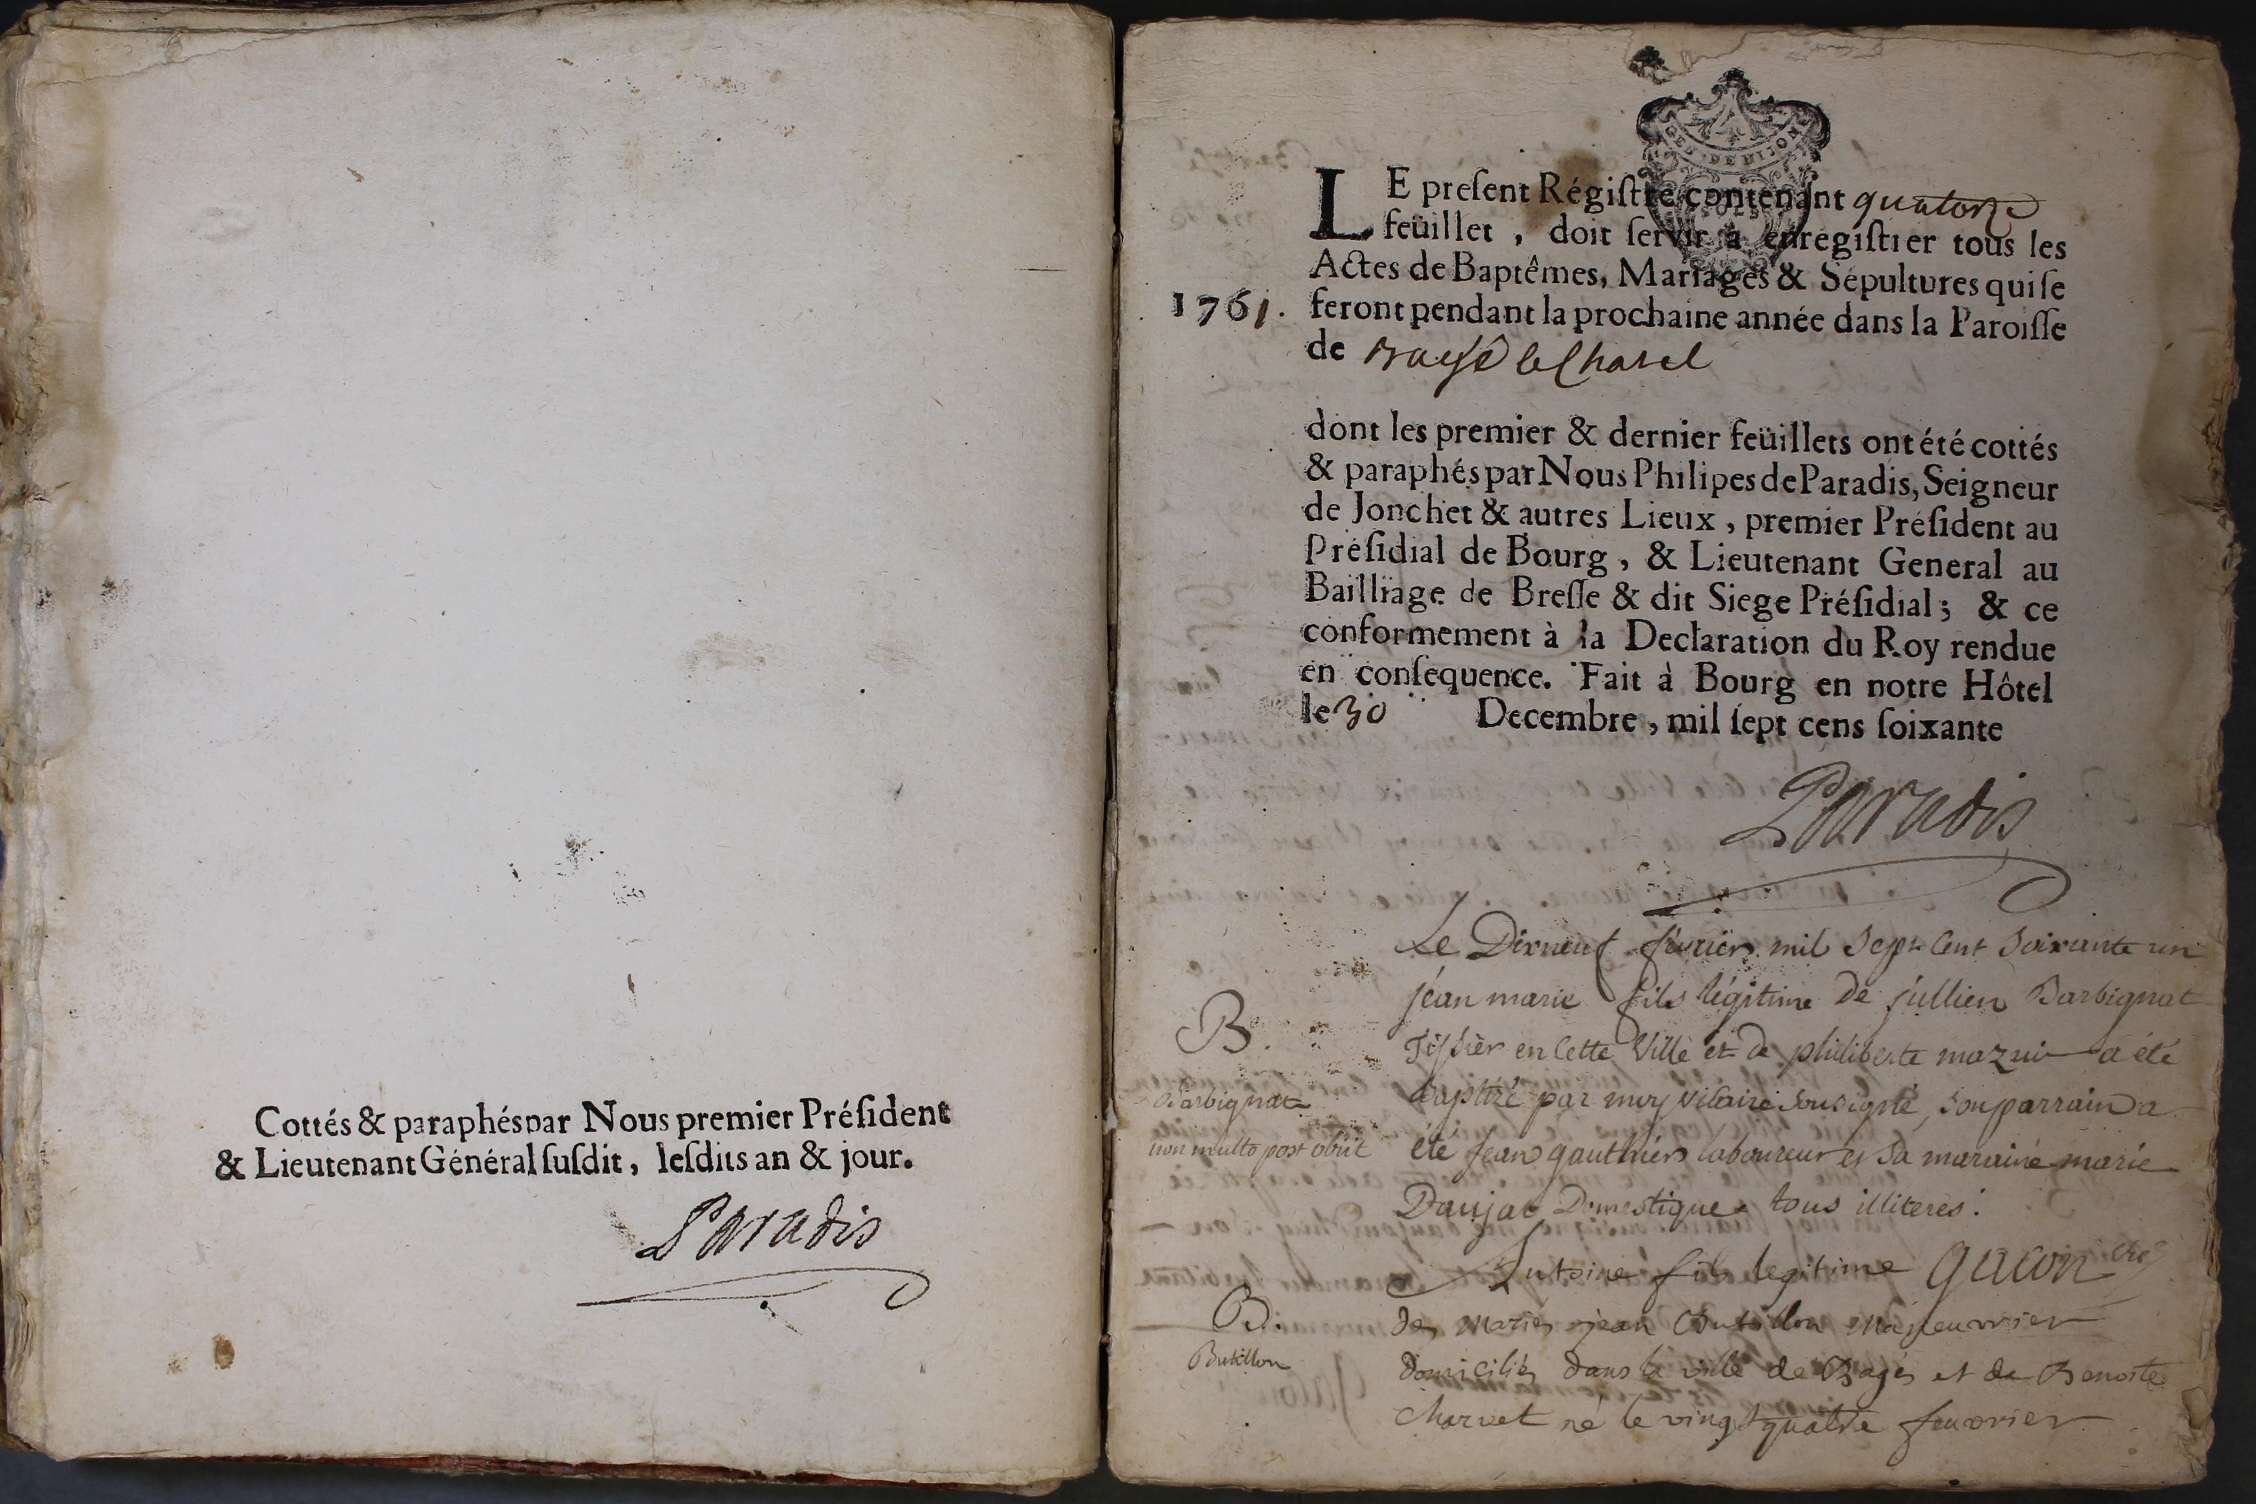 Cottés & paraphés par Nous premier Préſident
& Lieutenant Général ſuſdit, leſdits an & jour.
Paradis
GEN · DE DIJON
LE preſent Régiſtre contenant quatorze
feüillet , doit ſervir à enregiſtrer tous les
Actes de Baptêmes, Mariages & Sépultures qui ſe
1761. feront pendant la prochaine année dans la Paroiſſe
de Bagé le Chatel
dont les premier & dernier feüillets ont été cottés
& paraphés par Nous Philipes de Paradis, Seigneur
de Jonchet & autres Lieux , premier Préſident au
Préſidial de Bourg , & Lieutenant General au
Bailliage de Breſſe & dit Siege Préſidial ; & ce
conformement à la Declaration du Roy rendue
en conſequence. Fait à Bourg en notre Hôtel
le 30 Decembre , mil ſept cens ſoixante
Paradis
Le Dixneuf février mil Sept Cent Soixante un
jéan marie fils légitime De jullien Barbignat
B.
Tissier en Cette Ville et de philiberte mazuir a été
Barbignat
baptizé par moy vicaire Sousigné, son parrain a
non multo post obiit
été jean gauthier laboureur et Sa maraine marie
Daujat Domestique tous illiteres.
Antoine fils legitime GACON
B.
de jean Butillon Manœuvrier
Butillon
domiciliés dans la ville de Bagé et de Benoite
Charvet né le vingt quatre fevrier